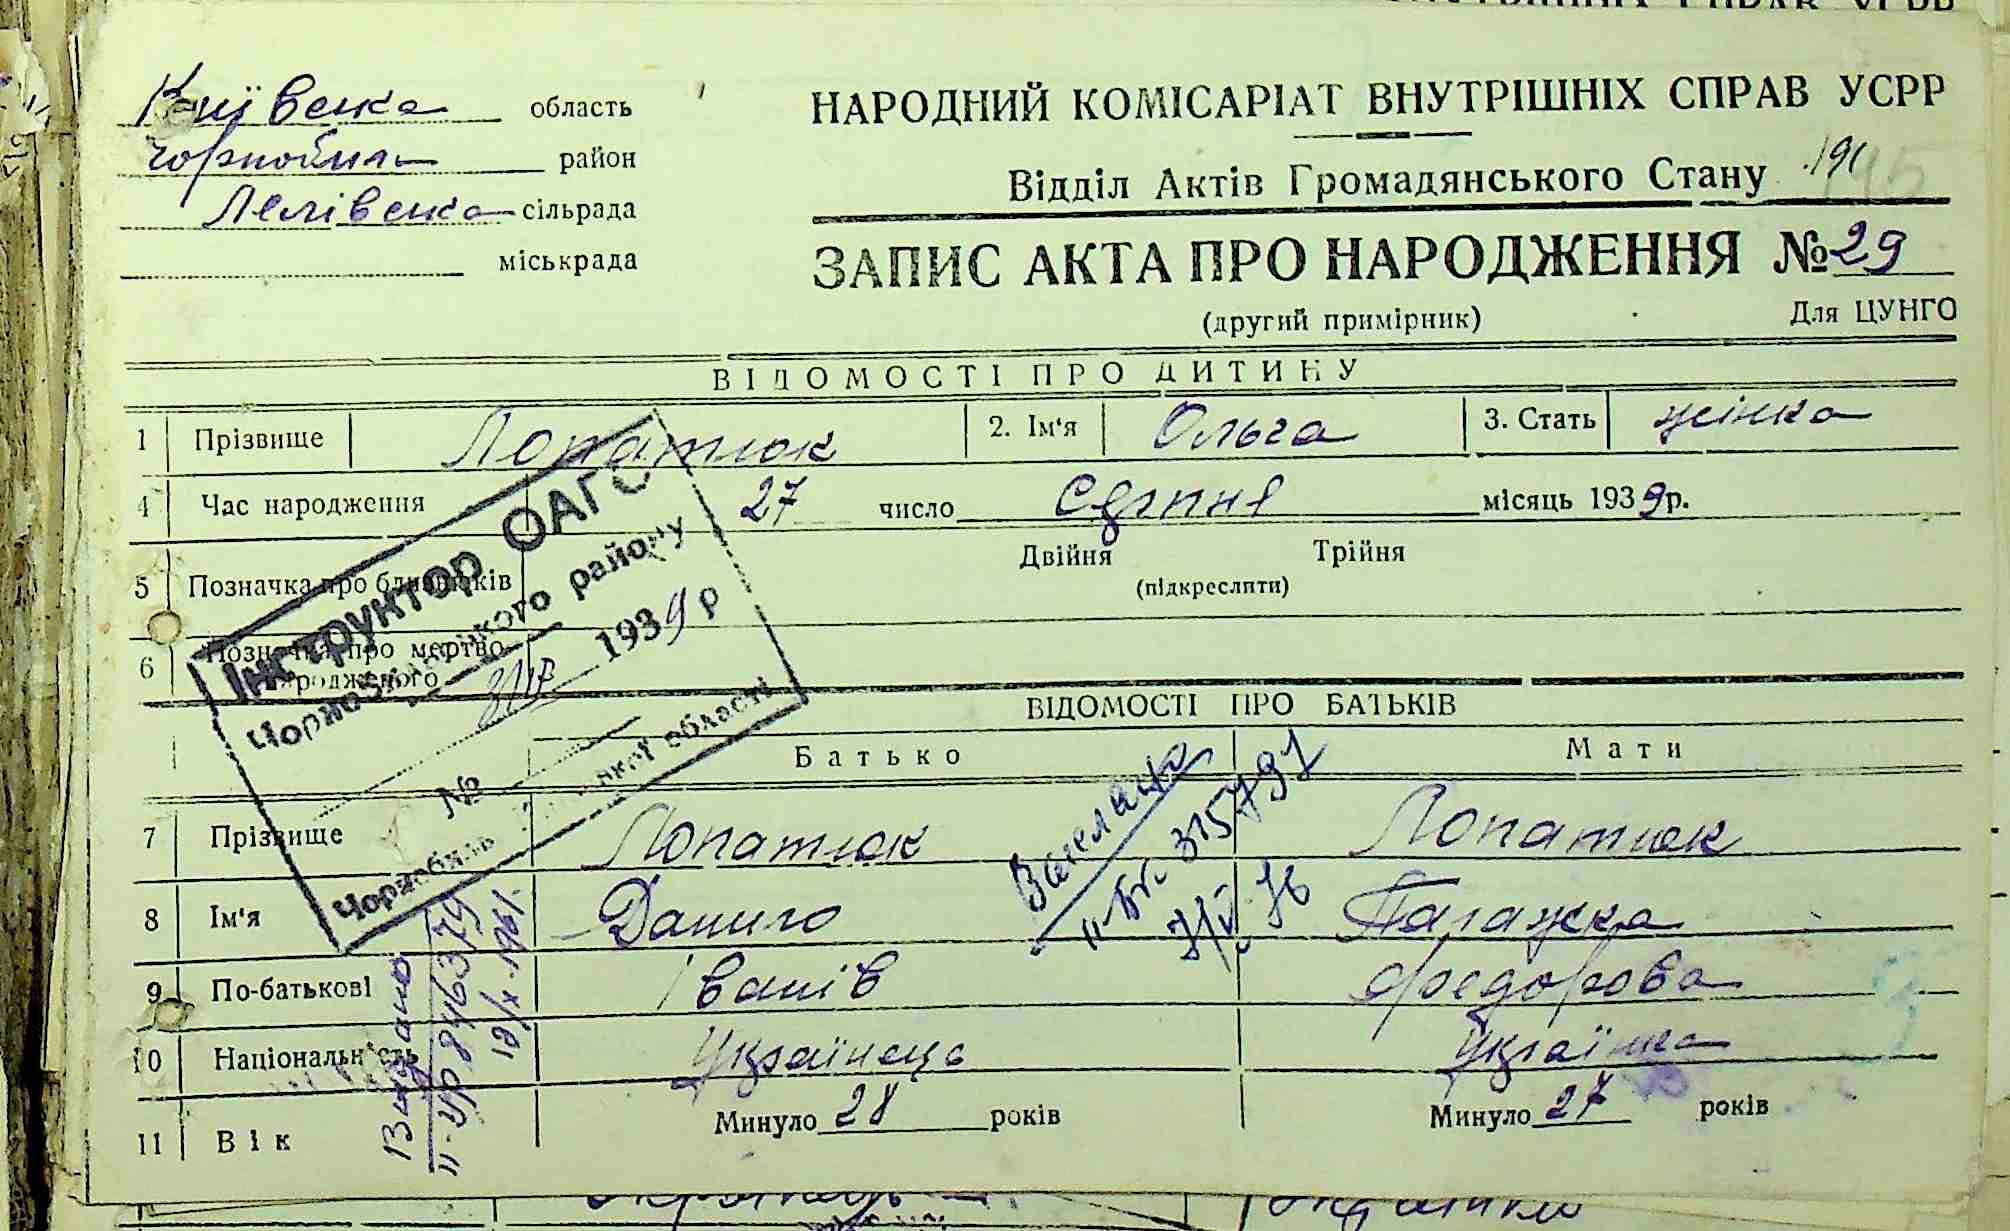 Київська область
Чорнобиль район
Лелівська сільрада
міськрада
НАРОДНИЙ КОМІСАРІАТ ВНУТРІШНІХ СПРАВ УСРР
Відділ Актів Громадянського Стану 191
ЗАПИС АКТА ПРО НАРОДЖЕННЯ № 29
(другий примірник) Для ЦУНГО
ВІДОМОСТІ ПРО ДИТИНУ
1 Прізвище Лопатюк 2. Ім'я Ольга 3. Стать жінка
4 Час народження 27 число Серпня місяць 1939 р.
5 Позначка про близнюків Двійня Трійня
(підкреслити)
6 Позначка про мертво-
народженого
Інструктор ОАГС
Чорнобильского району
1939 р
№
Чорнобиль Київської області
ВІДОМОСТІ ПРО БАТЬКІВ
Батько Мати
7 Прізвище Лопатюк Лопатюк
8 Ім'я Данило Палажка
9 По-батькові Іванів Федорова
10 Національність Українець Українка
11 Вік Минуло 28 років Минуло 27 років
315791
Видано